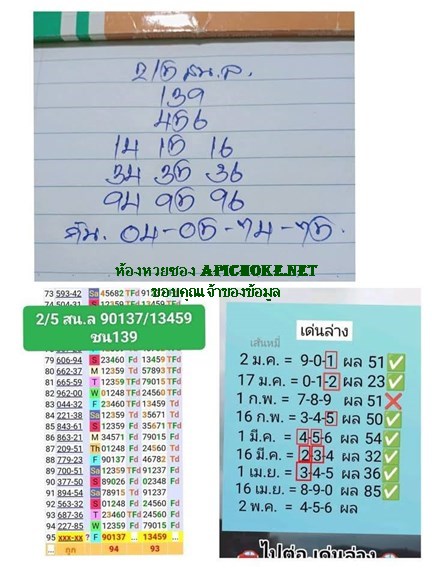 2/5 สน.ล.
139
456
14 15 16
34 35 36
94 95 96
04-05-74-75.
ห้องหวยซอง APICHOKE.NET
ขอบคุณเจ้าของข้อมูล
73 593-42 Sa 45682 TFd
2/5 สน.ล 90137/13459
ชน139
79 606-94 S 23460 Fd 13459 TFd
80 662-37 M 12359 Td 57893 TFd
81 665-59 T 12359 TFd 79015 TFd
82 962-00 W 01248 Fd 24560 TFd
83 044-32 F 23460 TFd 13459 Td
84 221-38 Sa 12359 Td 35671 Td
85 843-61 S 12359 TFd 35671 TFd
86 863-21 M 34571 Fd 79015 Fd
87 209-51 Th 01248 Fd 24560 Td
88 779-23 F 90137 Fd 46782 Td
89 700-51 Sa 12359 TFd 90237 TFd
90 377-50 S 89026 Fd 02348 Fd
91 894-54 Sa 78915 Td 91237
92 563-32 S 01248 Fd 24560 Fd
93 687-36 T 23460 TFd 24560 Fd
94 227-85 W 12359 Fd 79015 Fd
95 xxx-xx ? F 90137 ... 13459 ...
ถูก 94 93
เด่นล่าง
เส้นหมี่
2 ม.ค. = 9-0-1 ผล 51 ✅
17 ม.ค. = 0-1-2 ผล 23 ✅
1 ก.พ. = 7-8-9 ผล 51 ❌
16 ก.พ. = 3-4-5 ผล 50 ✅
1 มี.ค. = 4-5-6 ผล 54 ✅
16 มี.ค. = 2-3-4 ผล 32 ✅
1 เม.ย. = 3-4-5 ผล 36 ✅
16 เม.ย. = 8-9-0 ผล 85 ✅
2 พ.ค. = 4-5-6 ผล
ไปต่อ เด่นล่าง